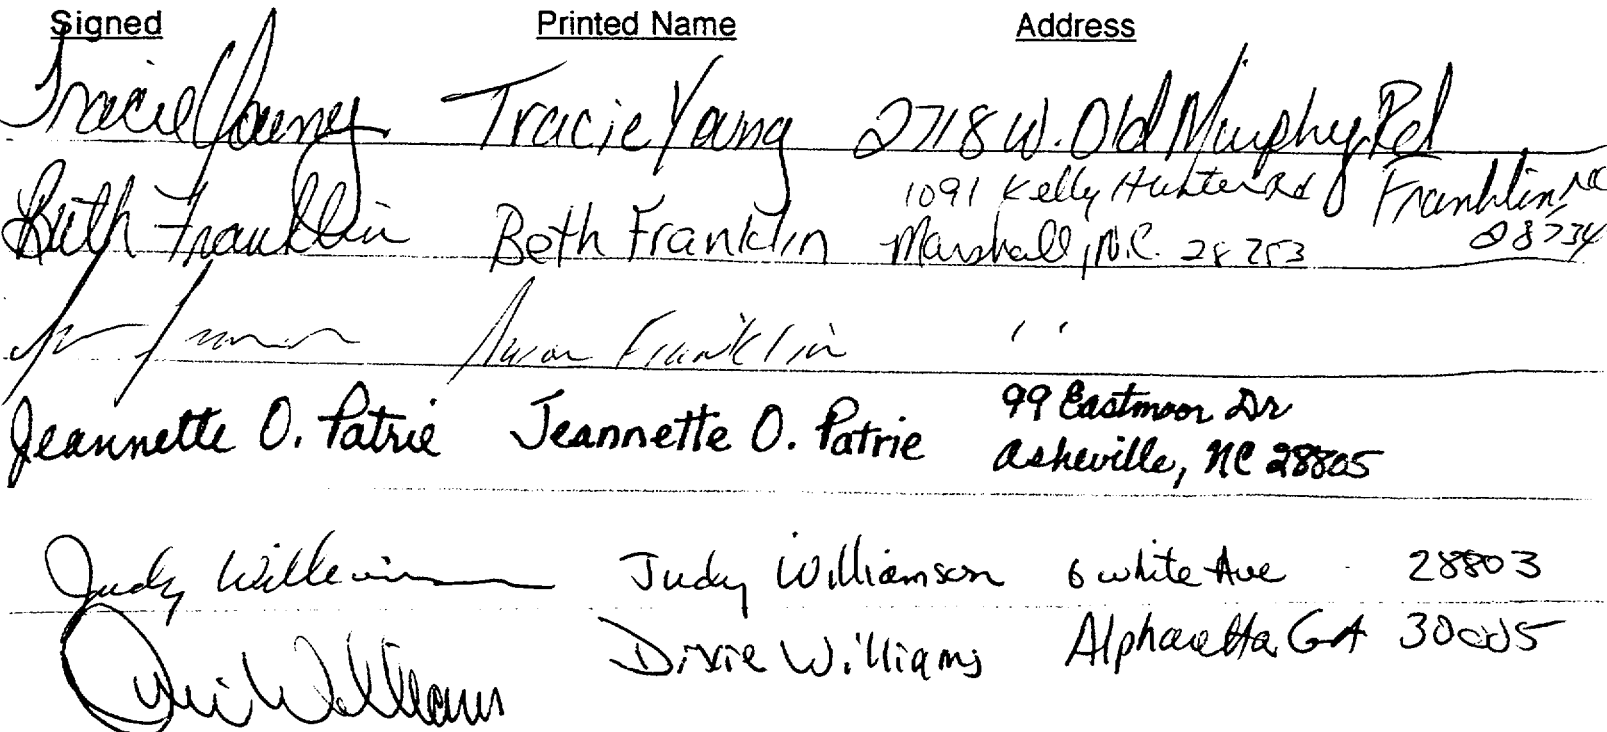 Signed Printed Name Address
Tracie Young Tracie Young 2718 W. Old Murphy Rd
Franklin NC 28734
Beth Franklin Beth Franklin 1091 Kelly Hunter Rd
Marshall, N.C. 28753
Franklin ' '
Jeannette O. Patrie Jeannette O. Patrie 99 Eastmoor Dr
Asheville, NC 28805
Judy Williamson Judy Williamson 6 White Ave 28803
Dixie Williams Dixie Williams Alpharetta GA 30005